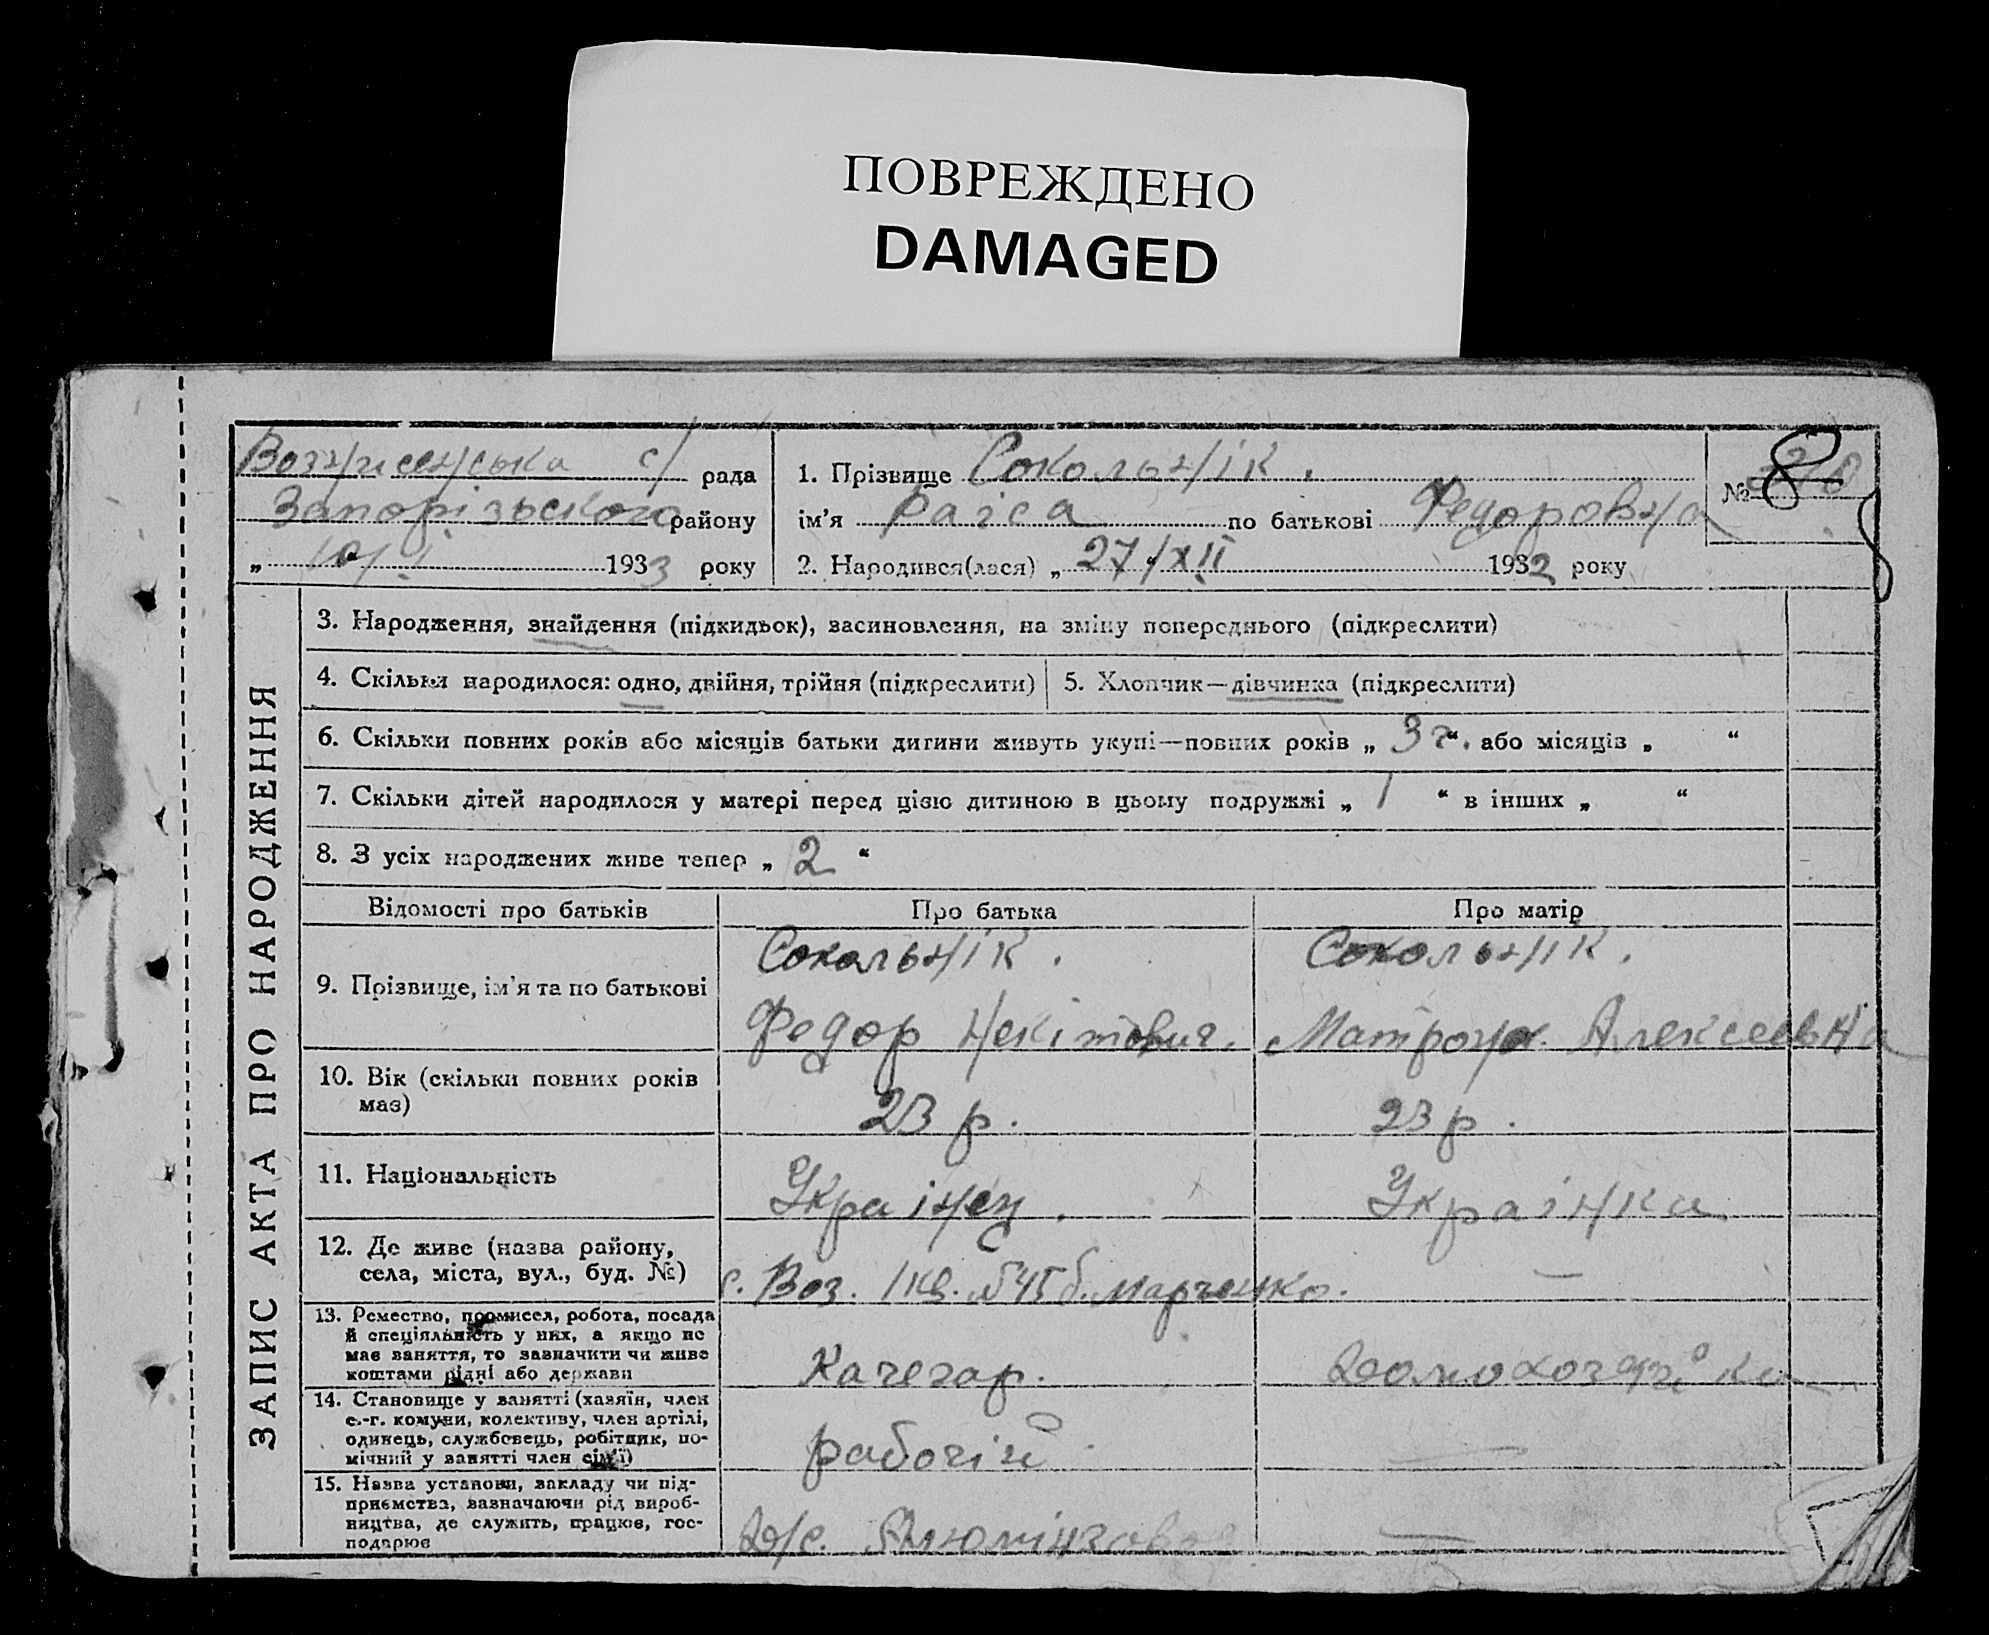 ПОВРЕЖДЕНО
DAMAGED
Вознисенська с/ рада
Запорізьского району
„ 10/I 1933 року
1. Прізвище Сокольнік.
ім’я Раіса по батькові Федоровна
2. Народився(лася) „ 27/XII 1932 року
№ 8
ЗАПИС АКТА ПРО НАРОДЖЕННЯ
3. Народження, знайдення (підкидьок), засиновлення, на зміну попереднього (підкреслити)
4. Скільки народилося: одно, двійня, трійня (підкреслити)
5. Хлопчик—дівчинка (підкреслити)
6. Скільки повних років або місяців батьки дитини живуть укупі—повних років „ 3 г. “ або місяців „ “
7. Скільки дітей народилося у матері перед цією дитиною в цьому подружжі „ 1 “ в інших „ “
8. З усіх народжених живе тепер „ 2 “
Відомості про батьків
Про батька
Про матір
9. Прізвище, ім’я та по батькові
Сокольнік.
Федор Некітович.
Сокольнік.
Матрона Алексеевна
10. Вік (скільки повних років
має)
23 р.
23 р.
11. Національність
Украінец.
Украінка
12. Де живе (назва району,
села, міста, вул., буд. №)
с. Воз. 1 кв. №45 б. Марченко.
—
13. Ремество, промисел, робота, посада
й спеціяльність у них, а якщо не
має заняття, то зазначити чи живе
коштами рідні або держави
Качегар.
Домохозяйка
14. Становище у занятті (хазяїн, член
с.-г. комуни, колективу, член артілі,
одинець, службовець, робітник, по-
мічний у занятті член сім’ї)
рабочій.
—
15. Назва установи, закладу чи під-
приємства, зазначаючи рід вироб-
ництва, де служить, працює, гос-
подарює
Д/с. Алюмінзавод
—